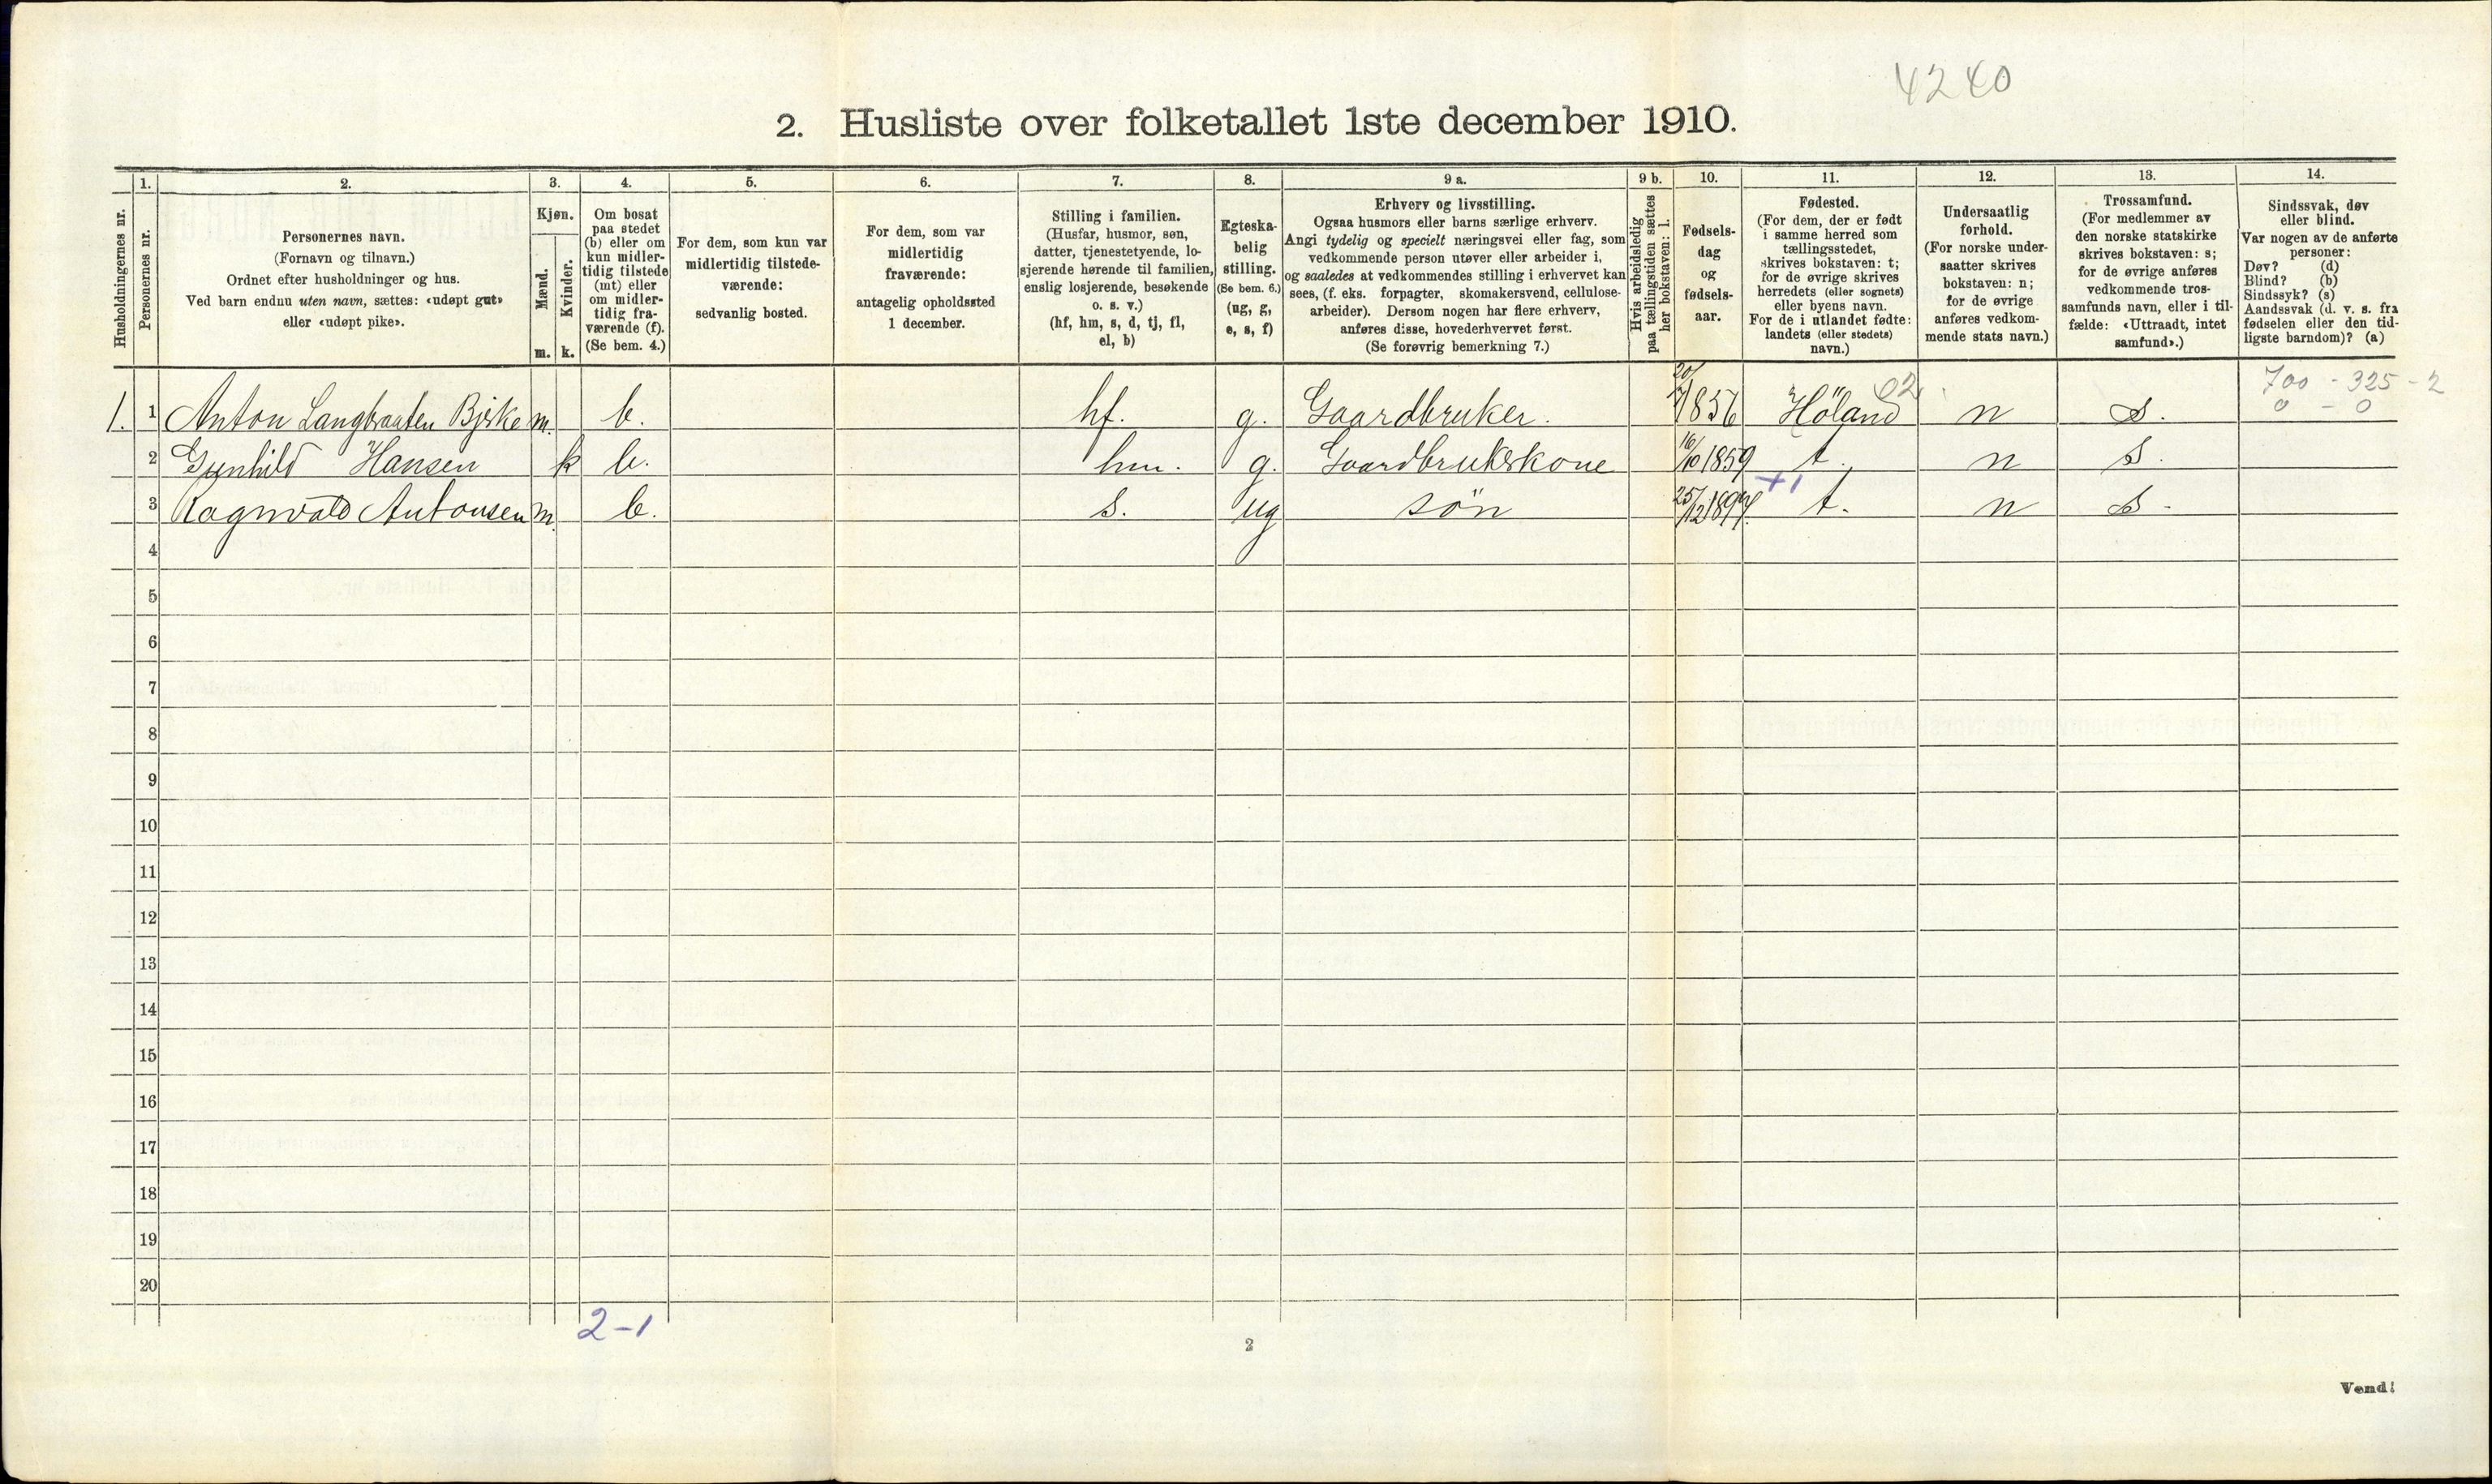 4240
2. Husliste over folketallet 1ste december 1910.
Husholdningernes nr.
1.
Personernes nr.
2.
Personernes navn.
(Fornavn og tilnavn.)
Ordnet efter husholdninger og hus.
Ved barn endnu uten navn, sættes: «udøpt gut»
eller «udøpt pike».
3.
Kjøn.
Mænd.
Kvinder.
m. k.
4.
Om bosat
paa stedet
(b) eller om
kun midler-
tidig tilstede
(mt) eller
om midler-
tidig fra-
værende (f).
(Se bem. 4.)
5.
For dem, som kun var
midlertidig tilstede-
værende:
sedvanlig bosted.
6.
For dem, som var
midlertidig
fraværende:
antagelig opholdssted
1 december.
7.
Stilling i familien.
(Husfar, husmor, søn,
datter, tjenestetyende, lo-
sjerende hørende til familien,
enslig losjerende, besøkende
o. s. v.)
(hf, hm, s, d, tj, fl,
el, b)
8.
Egteska-
belig
stilling.
(Se bem. 6.)
(ug, g,
e, s, f)
9 a.
Erhverv og livsstilling.
Ogsaa husmors eller barns særlige erhverv.
Angi tydelig og specielt næringsvei eller fag, som
vedkommende person utøver eller arbeider i,
og saaledes at vedkommendes stilling i erhvervet kan
sees, (f. eks. forpagter, skomakersvend, cellulose-
arbeider). Dersom nogen har flere erhverv,
anføres disse, hovederhvervet først.
(Se forøvrig bemerkning 7.)
9 b.
Hvis arbeidsledig
paa tællingstiden sættes
her bokstaven: l.
10.
Fødsels-
dag
og
fødsels-
aar.
11.
Fødested.
(For dem, der er født
i samme herred som
tællingsstedet,
skrives bokstaven: t;
for de øvrige skrives
herredets (eller sognets)
eller byens navn.
For de i utlandet fødte:
landets (eller stedets)
navn.)
12.
Undersaatlig
forhold.
(For norske under-
saatter skrives
bokstaven: n;
for de øvrige
anføres vedkom-
mende stats navn.)
13.
Trossamfund.
(For medlemmer av
den norske statskirke
skrives bokstaven: s;
for de øvrige anføres
vedkommende tros-
samfunds navn, eller i til-
fælde: «Uttraadt, intet
samfund».)
14.
Sindssvak, døv
eller blind.
Var nogen av de anførte
personer:
Døv? (d)
Blind? (b)
Sindssyk? (s)
Aandssvak (d. v. s. fra
fødselen eller den tid-
ligste barndom)? (a)
700 - 325 - 2
0 - 0
1. 1 Anton Langbraaten Bjerke m. b. hf. g. Gaardbruker. 20/7 1856 Höland 02 n s.
2 Gunhild Hansen k b. hm. g. Gaardbrukerkone 16/10 1859 t. n s.
+1
3 Ragnvald Antonsen m. b. s. ug sön 25/12 1897. t. n s.
4
5
6
7
8
9
10
11
12
13
14
15
16
17
18
19
20
2-1
2
Vend!